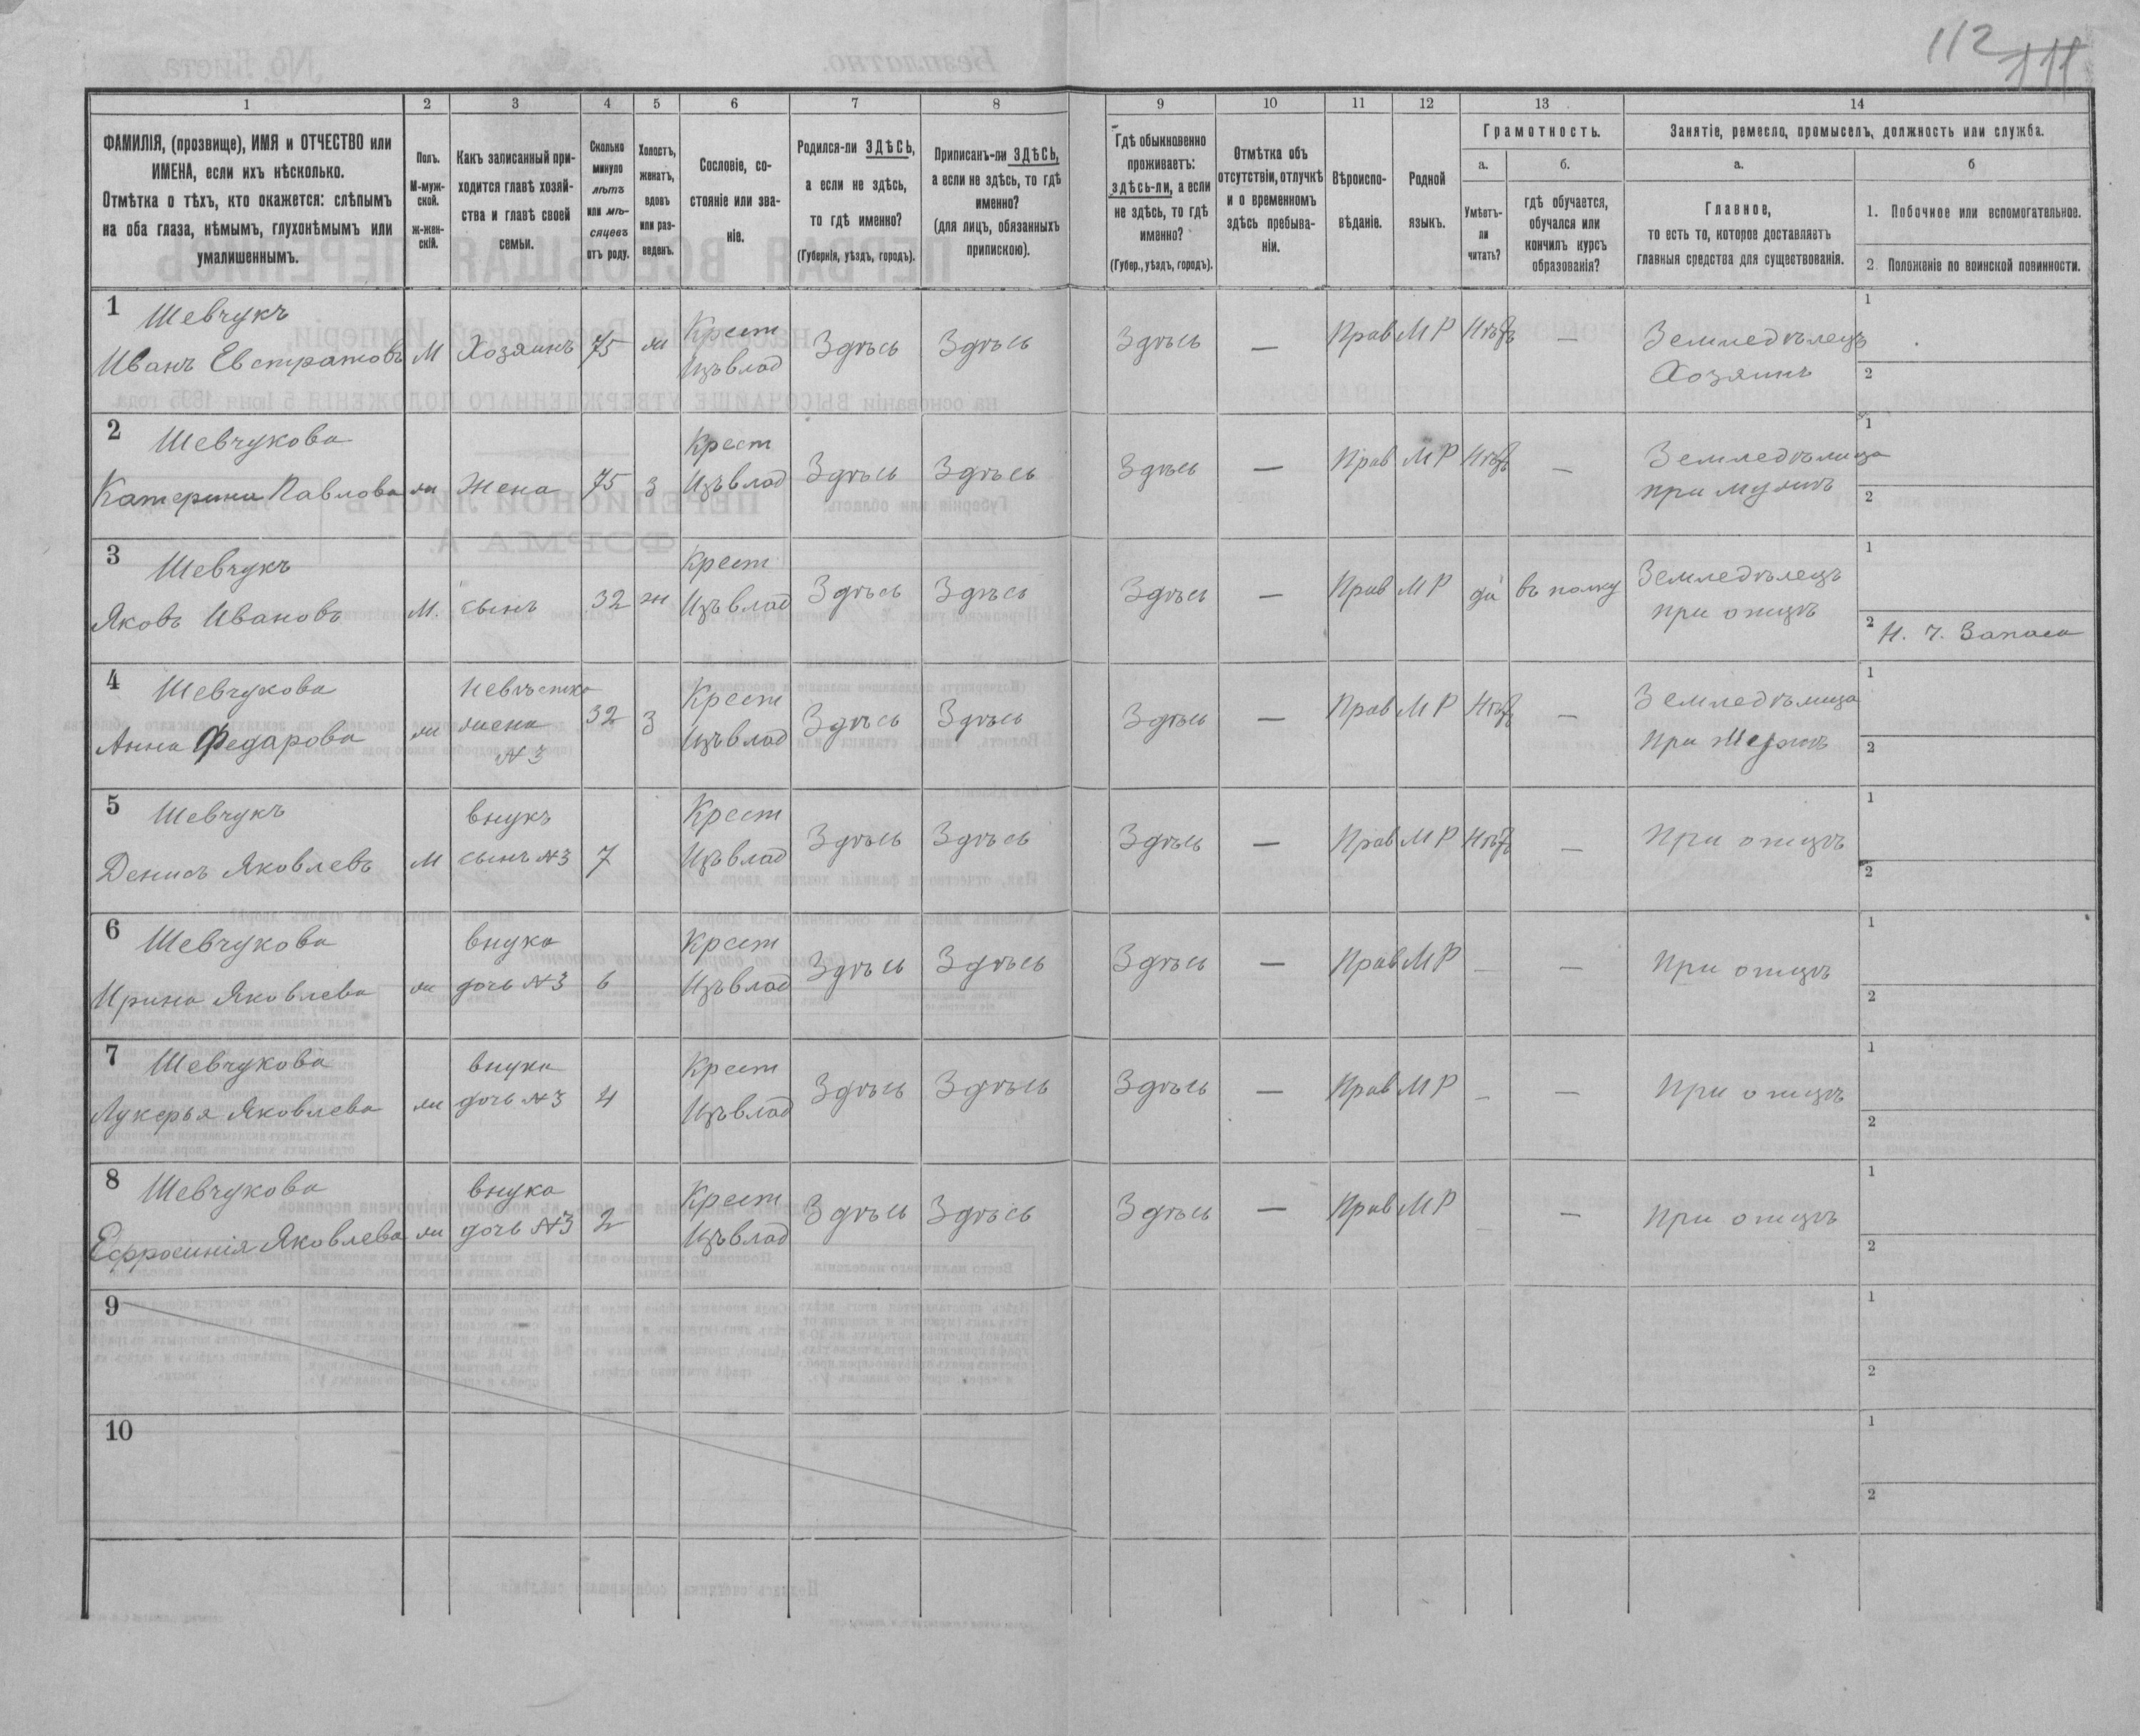 112 111
1 2 3 4 5 6 7 8 9 10 11 12 13 14
ФАМИЛІЯ, (прозвище), ИМЯ и ОТЧЕСТВО или
ИМЕНА, если ихъ нѣсколько.
Отмѣтка о тѣхъ, кто окажется: слѣпымъ
на оба глаза, нѣмымъ, глухонѣмымъ или
умалишеннымъ.
Полъ.
М-муж-
ской.
ж-жен-
скій.
Какъ записанный при-
ходится главѣ хозяй-
ства и главѣ своей
семьи.
Сколько
минуло
лѣтъ
или мѣ-
сяцевъ
отъ роду.
Холостъ,
женатъ,
вдовъ
или раз-
веденъ.
Сословіе, со-
стояніе или зва-
ніе.
Родился-ли ЗДѢСЬ,
а если не здѣсь,
то гдѣ именно?
(Губернія, уѣздъ, городъ).
Приписанъ-ли ЗДѢСЬ,
а если не здѣсь, то гдѣ
именно?
(для лицъ, обязанныхъ
припискою).
Гдѣ обыкновенно
проживаетъ:
здѣсь-ли, а если
не здѣсь, то гдѣ
именно?
(Губер., уѣздъ, городъ).
Отмѣтка объ
отсутствіи, отлучкѣ
и о временномъ
здѣсь пребыва-
ніи.
Вѣроиспо-
вѣданіе.
Родной
языкъ.
Грамотность.
а.
Умѣетъ-
ли
читать?
б.
гдѣ обучается,
обучался или
кончилъ курсъ
образованія?
Занятіе, ремесло, промыселъ, должность или служба.
а.
Главное,
то есть то, которое доставляетъ
главныя средства для существованія.
б
1. Побочное или вспомогательное.
2 Положеніе по воинской повинности.
1 Шевчукъ Крест 1
Иванъ Евстратовъ М Хозяинъ 75 ж Изъ влад Здѣсь Здѣсь Здѣсь — Прав МР Нѣтъ — Земледѣлецъ
Хозяинъ 2
2 Шевчукова Крест 1
Катерина Павлова ж Жена 75 З Изъ влад Здѣсь Здѣсь Здѣсь — Прав МР Нѣтъ — Земледѣлица
при мужѣ 2
3 Шевчукъ Крест 1
Яковъ Ивановъ М. сынъ 32 ж Изъ влад Здѣсь Здѣсь Здѣсь — Прав МР да въ полку Земледѣлецъ
при отцѣ 2 Н. Ч. Запаса
4 Шевчукова Невѣстка Крест 1
Анна Федарова ж жена 32 З Изъ влад Здѣсь Здѣсь Здѣсь — Прав МР Нѣтъ — Земледѣлица
№ 3 при Мужѣ 2
5 Шевчукъ внукъ Крест 1
Денисъ Яковлевъ М сынъ №3 7 Изъ влад Здѣсь Здѣсь Здѣсь — Прав МР Нѣтъ — При отцѣ 2
6 Шевчукова внука Крест 1
Ирина Яковлева ж дочь №3 6 Изъ влад Здѣсь Здѣсь Здѣсь — Прав МР — — При отцѣ 2
7 Шевчукова внука Крест 1
Лукерья Яковлева ж дочь №3 4 Изъ влад Здѣсь Здѣсь Здѣсь — Прав МР — — При отцѣ 2
8 Шевчукова внука Крест 1
Ефросинія Яковлева ж дочь №3 2 Изъ влад Здѣсь Здѣсь Здѣсь — Прав МР — — При отцѣ 2
9 1
2
10 1
2